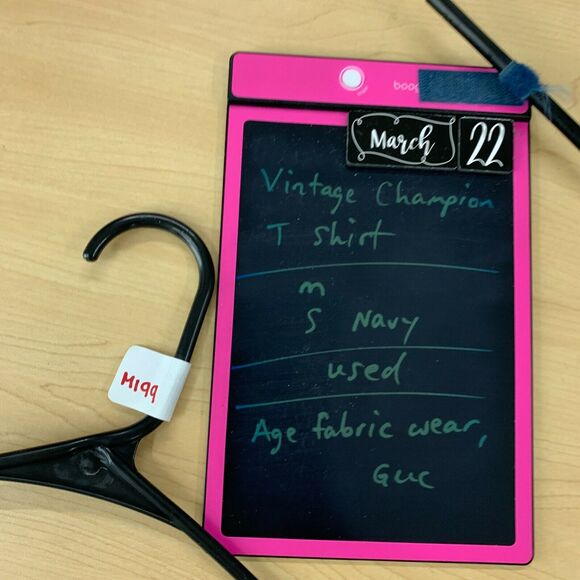 boog
March 22
Vintage Champion
T Shirt
m
S Navy
used
Age fabric wear,
Guc
M199